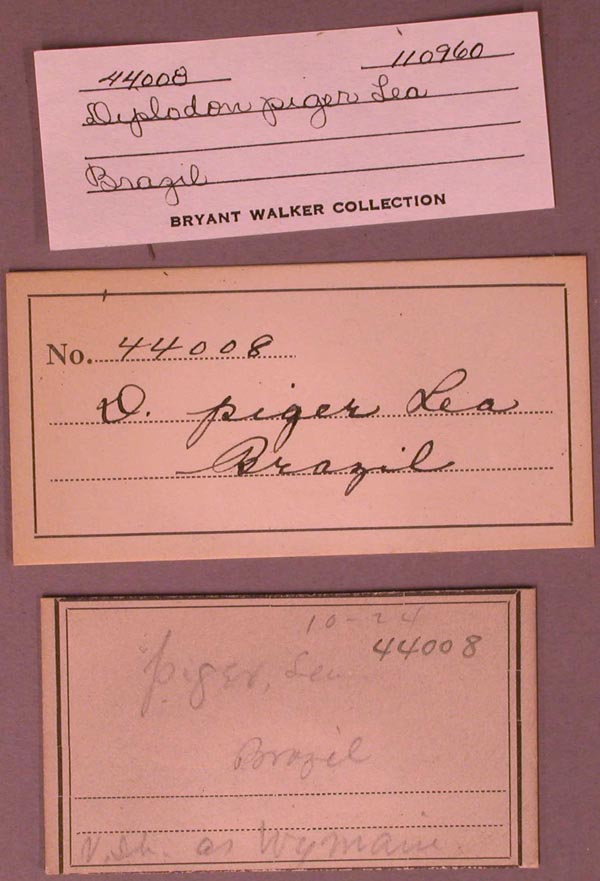 44008 110960
Diplodon piger Lea
Brazil
BRYANT WALKER COLLECTION
No. 44008
D. piger Lea
Brazil
10-24
44008
piger, Lea
Brazil
as Wymani